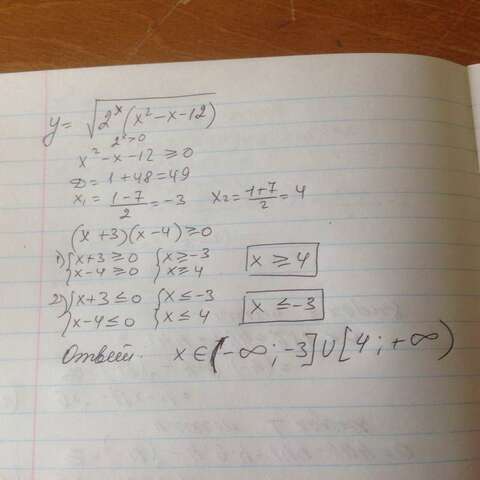 y = √(2^x (x² - x - 12))
2^x > 0
x² - x - 12 ≥ 0
D = 1 + 48 = 49
x₁ = (1 - 7)/2 = -3 x₂ = (1 + 7)/2 = 4
(x + 3)(x - 4) ≥ 0
1) { x + 3 ≥ 0 { x ≥ -3
{ x - 4 ≥ 0 { x ≥ 4 x ≥ 4
2) { x + 3 ≤ 0 { x ≤ -3
{ x - 4 ≤ 0 { x ≤ 4 x ≤ -3
Ответ. x ∈ (-∞; -3] ∪ [4; +∞)